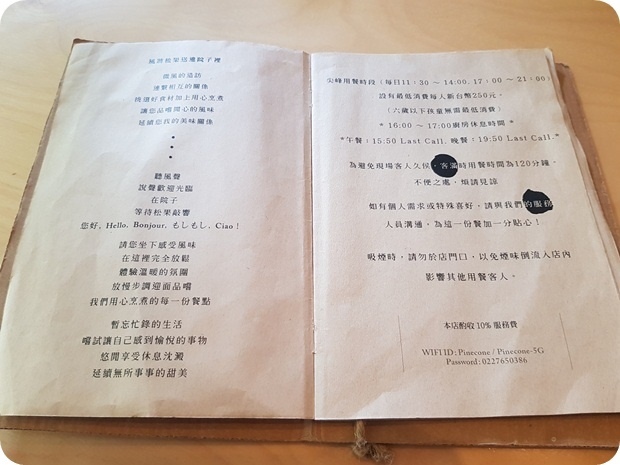 風替松果送進院子裡
微風的造訪
連繫相互的關係
挑選好食材加上用心烹煮
讓您品嚐開心的風味
延續您我的美味關係
聽風聲
說聲歡迎光臨
在院子
等待松果敲響
您好, Hello, Bonjour, もしもし, Ciao !
請您坐下感受風味
在這裡完全放鬆
體驗溫暖的氛圍
放慢步調迎面品嚐
我們用心烹煮的每一份餐點
暫忘忙錄的生活
嚐試讓自己感到愉悅的事物
悠閒享受休息沈澱
延續無所事事的甜美
尖峰用餐時段 (每日11:30 ～ 14:00, 17:00 ～ 21:00)
設有最低消費每人新台幣250元。
(六歲以下孩童無需最低消費)
* 16:00 ～ 17:00廚房休息時間 *
*午餐:15:50 Last Call. 晚餐:19:50 Last Call.*
為避免現場客人久侯,客滿時用餐時間為120分鐘。
不便之處,煩請見諒
如有個人需求或特殊喜好,請與我們的服務
人員溝通,為這一份餐加一分貼心!
吸煙時,請勿於店門口,以免煙味倒流入店內
影響其他用餐客人。
本店酌收10%服務費
WIFI ID: Pinecone / Pinecone-5G
Password: 0227650386